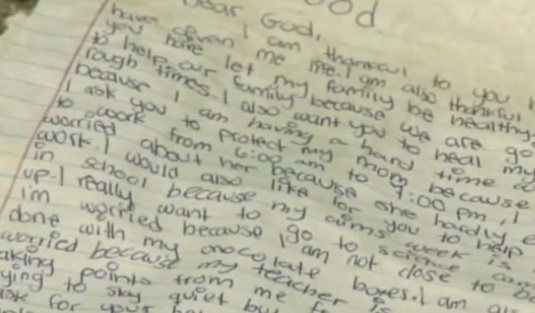 God
Dear God,
I am thankful to you
have given me life. I am also thankful
you have let my family be healthy
to help our family because we are go
rough times. I also want you to heal my
because I am having a hard time
I ask you to protect my mom because
to work from 6:00 am to 7:00 pm, I
worried about her because she hardly e
work. I would also like for you to help
in school because my aims week is
up. I really want to go to science cam
i'm worried because I am not close to be
done with my chocolate boxes. I am al
worried because my teacher is
aking points from me f
ying to stay quiet bu
ask for your